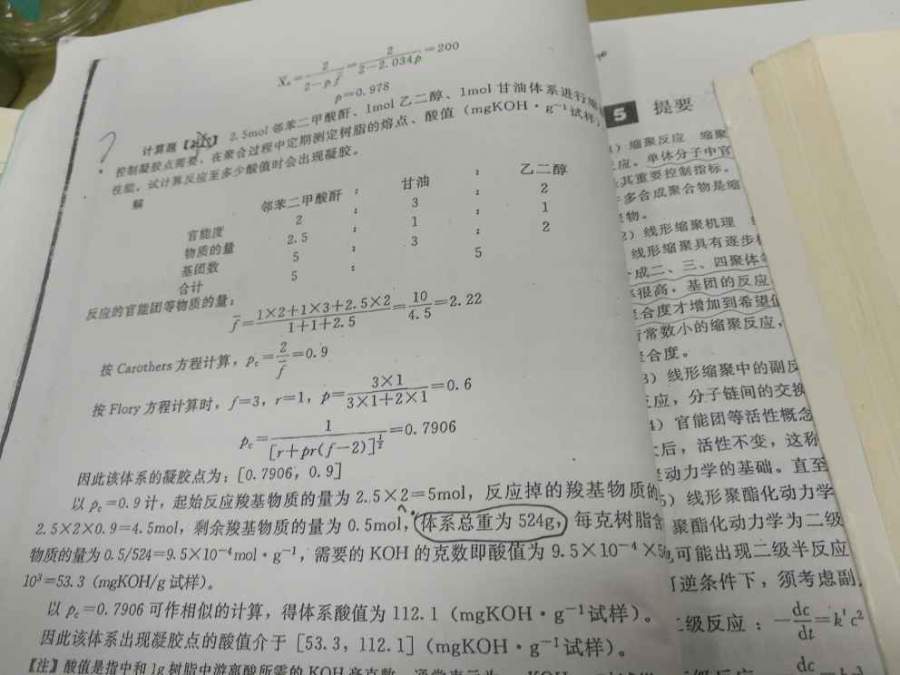 X̄ₙ=2/(2-p f̄)=2/(2-2.034p)=200
p=0.978
计算题 2.5mol 邻苯二甲酸酐、1mol 乙二醇、1mol 甘油体系进行
控制凝胶点需要，在聚合过程中定期测定树脂的熔点、酸值（mgKOH·g⁻¹试样）
性能。试计算反应至多少酸值时会出现凝胶。
解
邻苯二甲酸酐 : 甘油 : 乙二醇
官能度 2 : 3 : 2
物质的量 2.5 : 1 : 1
基团数 5 : 3 : 2
合计 5 : 5
反应的官能团等物质的量：
f̄=(1×2+1×3+2.5×2)/(1+1+2.5)=10/4.5=2.22
按 Carothers 方程计算，p_c=2/f̄=0.9
按 Flory 方程计算时，f=3，r=1，p=(3×1)/(3×1+2×1)=0.6
p_c=1/[r+pr(f-2)]^(1/2)=0.7906
因此该体系的凝胶点为：[0.7906，0.9]
以 p_c=0.9 计，起始反应羧基物质的量为 2.5×2=5mol，反应掉的羧基物质的
2.5×2×0.9=4.5mol，剩余羧基物质的量为 0.5mol，体系总重为 524g，每克树脂含
物质的量为 0.5/524=9.5×10⁻⁴mol·g⁻¹，需要的 KOH 的克数即酸值为 9.5×10⁻⁴×
10³=53.3（mgKOH/g 试样）。
以 p_c=0.7906 可作相似的计算，得体系酸值为 112.1（mgKOH·g⁻¹试样）。
因此该体系出现凝胶点的酸值介于 [53.3，112.1]（mgKOH·g⁻¹试样）。
【注】酸值是指中和 1g 树脂中游离酸所需的 KOH 毫克数
5 提要
）缩聚反应 缩聚
应。单体分子中官
其重要控制指标。
多合成聚合物是缩
物。
2）线形缩聚机理
线形缩聚具有逐步
成二、三、四聚体
很高。基团的反应
合度才增加到希望
常数小的缩聚反应，
合度。
3）线形缩聚中的副反
应，分子链间的交换
4）官能团等活性概念
后，活性不变，这称
动力学的基础。直至
5）线形聚酯化动力学
聚酯化动力学为二级
可能出现二级半反应
逆条件下，须考虑副
二级反应：-dc/dt=k′c²
dc